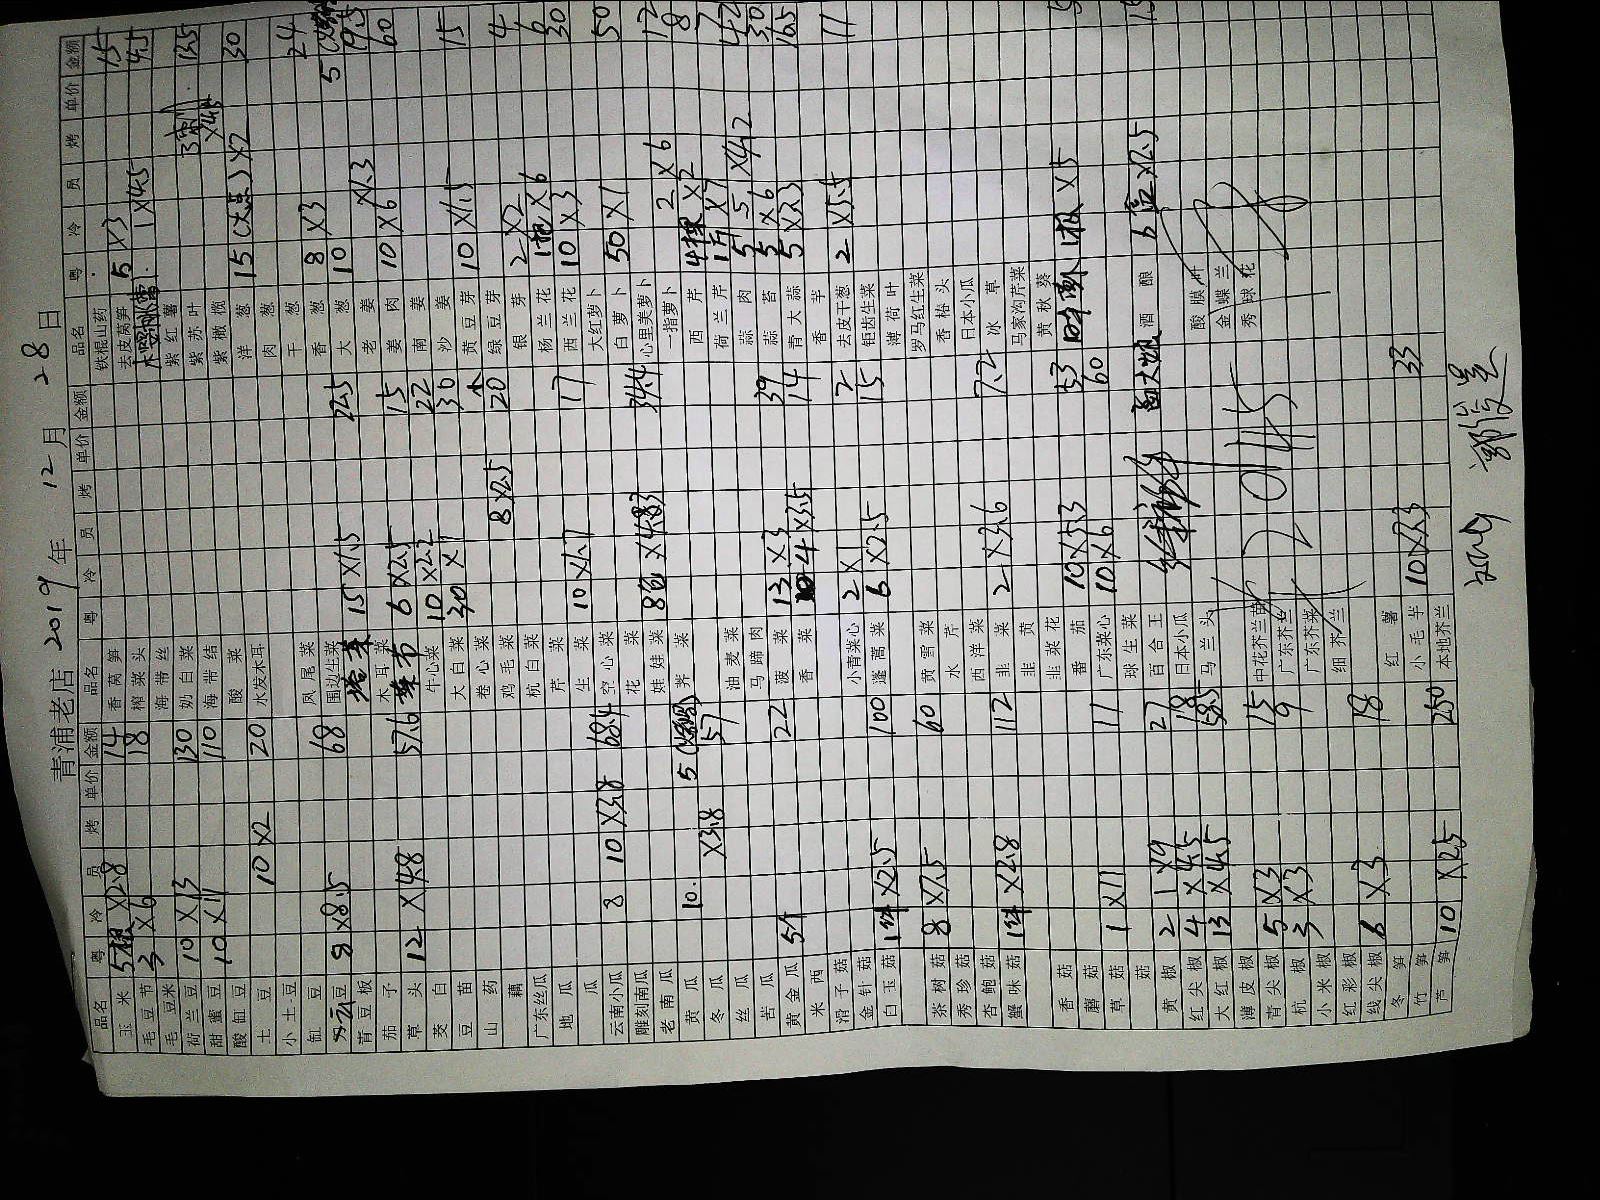 青浦老店 2019年 12月 28日
品名 粤 冷 员 烤 单价 金额
玉米 5根 ×2.8 14
毛豆节 3 ×6 18
毛豆米
荷兰豆 10 ×13 130
甜蜜豆 10 ×11 110
酸缸豆
土豆 10 ×2 20
小土豆
缸豆
豆 8 ×8.5 68
青豆板
茄子
草头 12 ×4.8 57.6
茭白
豆苗
山药
藕
广东丝瓜
地瓜
瓜
云南小瓜 8 10 ×3.8 68.4
雕刻南瓜
老南瓜
黄瓜 10. 5
冬瓜 ×3.8 57
丝瓜
苦瓜
黄金瓜 5个 22
米西
滑子菇
金针菇
白玉菇 1件 ×2.5 100
茶树菇 8 ×7.5 60
秀珍菇
杏鲍菇
蟹味菇 1件 ×2.8 112
香菇
蘑菇
草菇 1 ×11 11
菇
黄椒 2 1 ×9 27
红尖椒 4 ×4.5 18
大红椒 13 ×4.5 58.5
薄皮椒
青尖椒 5 ×3 15
杭椒 3 ×3 9
小米椒
红彩椒
线尖椒 6 ×3 18
冬笋
竹笋
芦笋 10 ×25 250
品名 粤 冷 员 烤 单价 金额
香莴笋
榨菜头
海带丝
奶白菜
海带结
酸菜
水发木耳
凤尾菜
围边生菜
塔菜 15 ×1.5 22.5
木耳菜
菜节 6 ×2.5 15
牛心菜 10 ×2.2 22
大白菜 30 ×1 30
卷心菜
鸡毛菜 8 ×2.5 20
杭白菜
芹菜
生菜 10 ×1.7 17
空心菜
花菜
娃娃菜 8包 ×4.3 34.4
荠菜
油麦菜
马蹄肉
菠菜 13 ×3 39
香菜 4 ×3.5 14
小青菜心 2 ×1 2
蓬蒿菜 6 ×2.5 15
黄雪菜
水芹
西洋菜
韭菜 2 ×3.6 7.2
韭黄
韭菜花
番茄 10 ×5.3 53
广东菜心 10 ×6 60
球生菜
百合王
日本小瓜
马兰头
中花芥兰苗
广东芥丝
广东芥菜
细芥兰
红薯
小毛芋 10 ×3.3 33
本地芥兰
品名 粤 冷 员 烤 单价 金额
铁棍山药 5 ×3 15
去皮莴笋 1 ×4.5 4.5
紫红薯
紫苏叶 ×4.5 13.5
紫橄榄
洋葱 15 (大点) ×2 30
肉葱
干葱
香葱 8 ×3 24
大葱 10 5
老姜 ×1.3 19.5
姜肉 10 ×6 60
南姜
沙姜
黄豆芽 10 ×1.5 15
绿豆芽
银芽 2 ×2 4
杨兰花 1把 ×6 6
西兰花 10 ×3 30
大红萝卜
白萝卜 50 ×1 50
心里美萝卜
一指萝卜 2 ×6 12
西芹 4棵 ×2 8
荷兰芹 1斤 ×7 7
蒜肉 5 5 ×4.2 42
蒜苔 5 ×6 30
青大蒜 5 ×3.3 16.5
香芋
去皮干葱 2 ×5.5 11
钜齿生菜
薄荷叶
罗马红生菜
香椿头
日本小瓜
冰草
马家沟芹菜
黄秋葵
1板 ×5 5
酒酿 6盒 ×2.5 15
酸膜叶
金蝶兰
秀球花
2011.15
2019